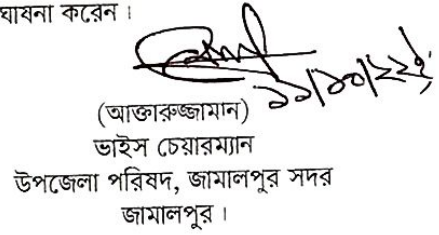 ঘাষনা করেন।
(আক্তারুজ্জামান)
ভাইস চেয়ারম্যান
উপজেলা পরিষদ, জামালপুর সদর
জামালপুর।